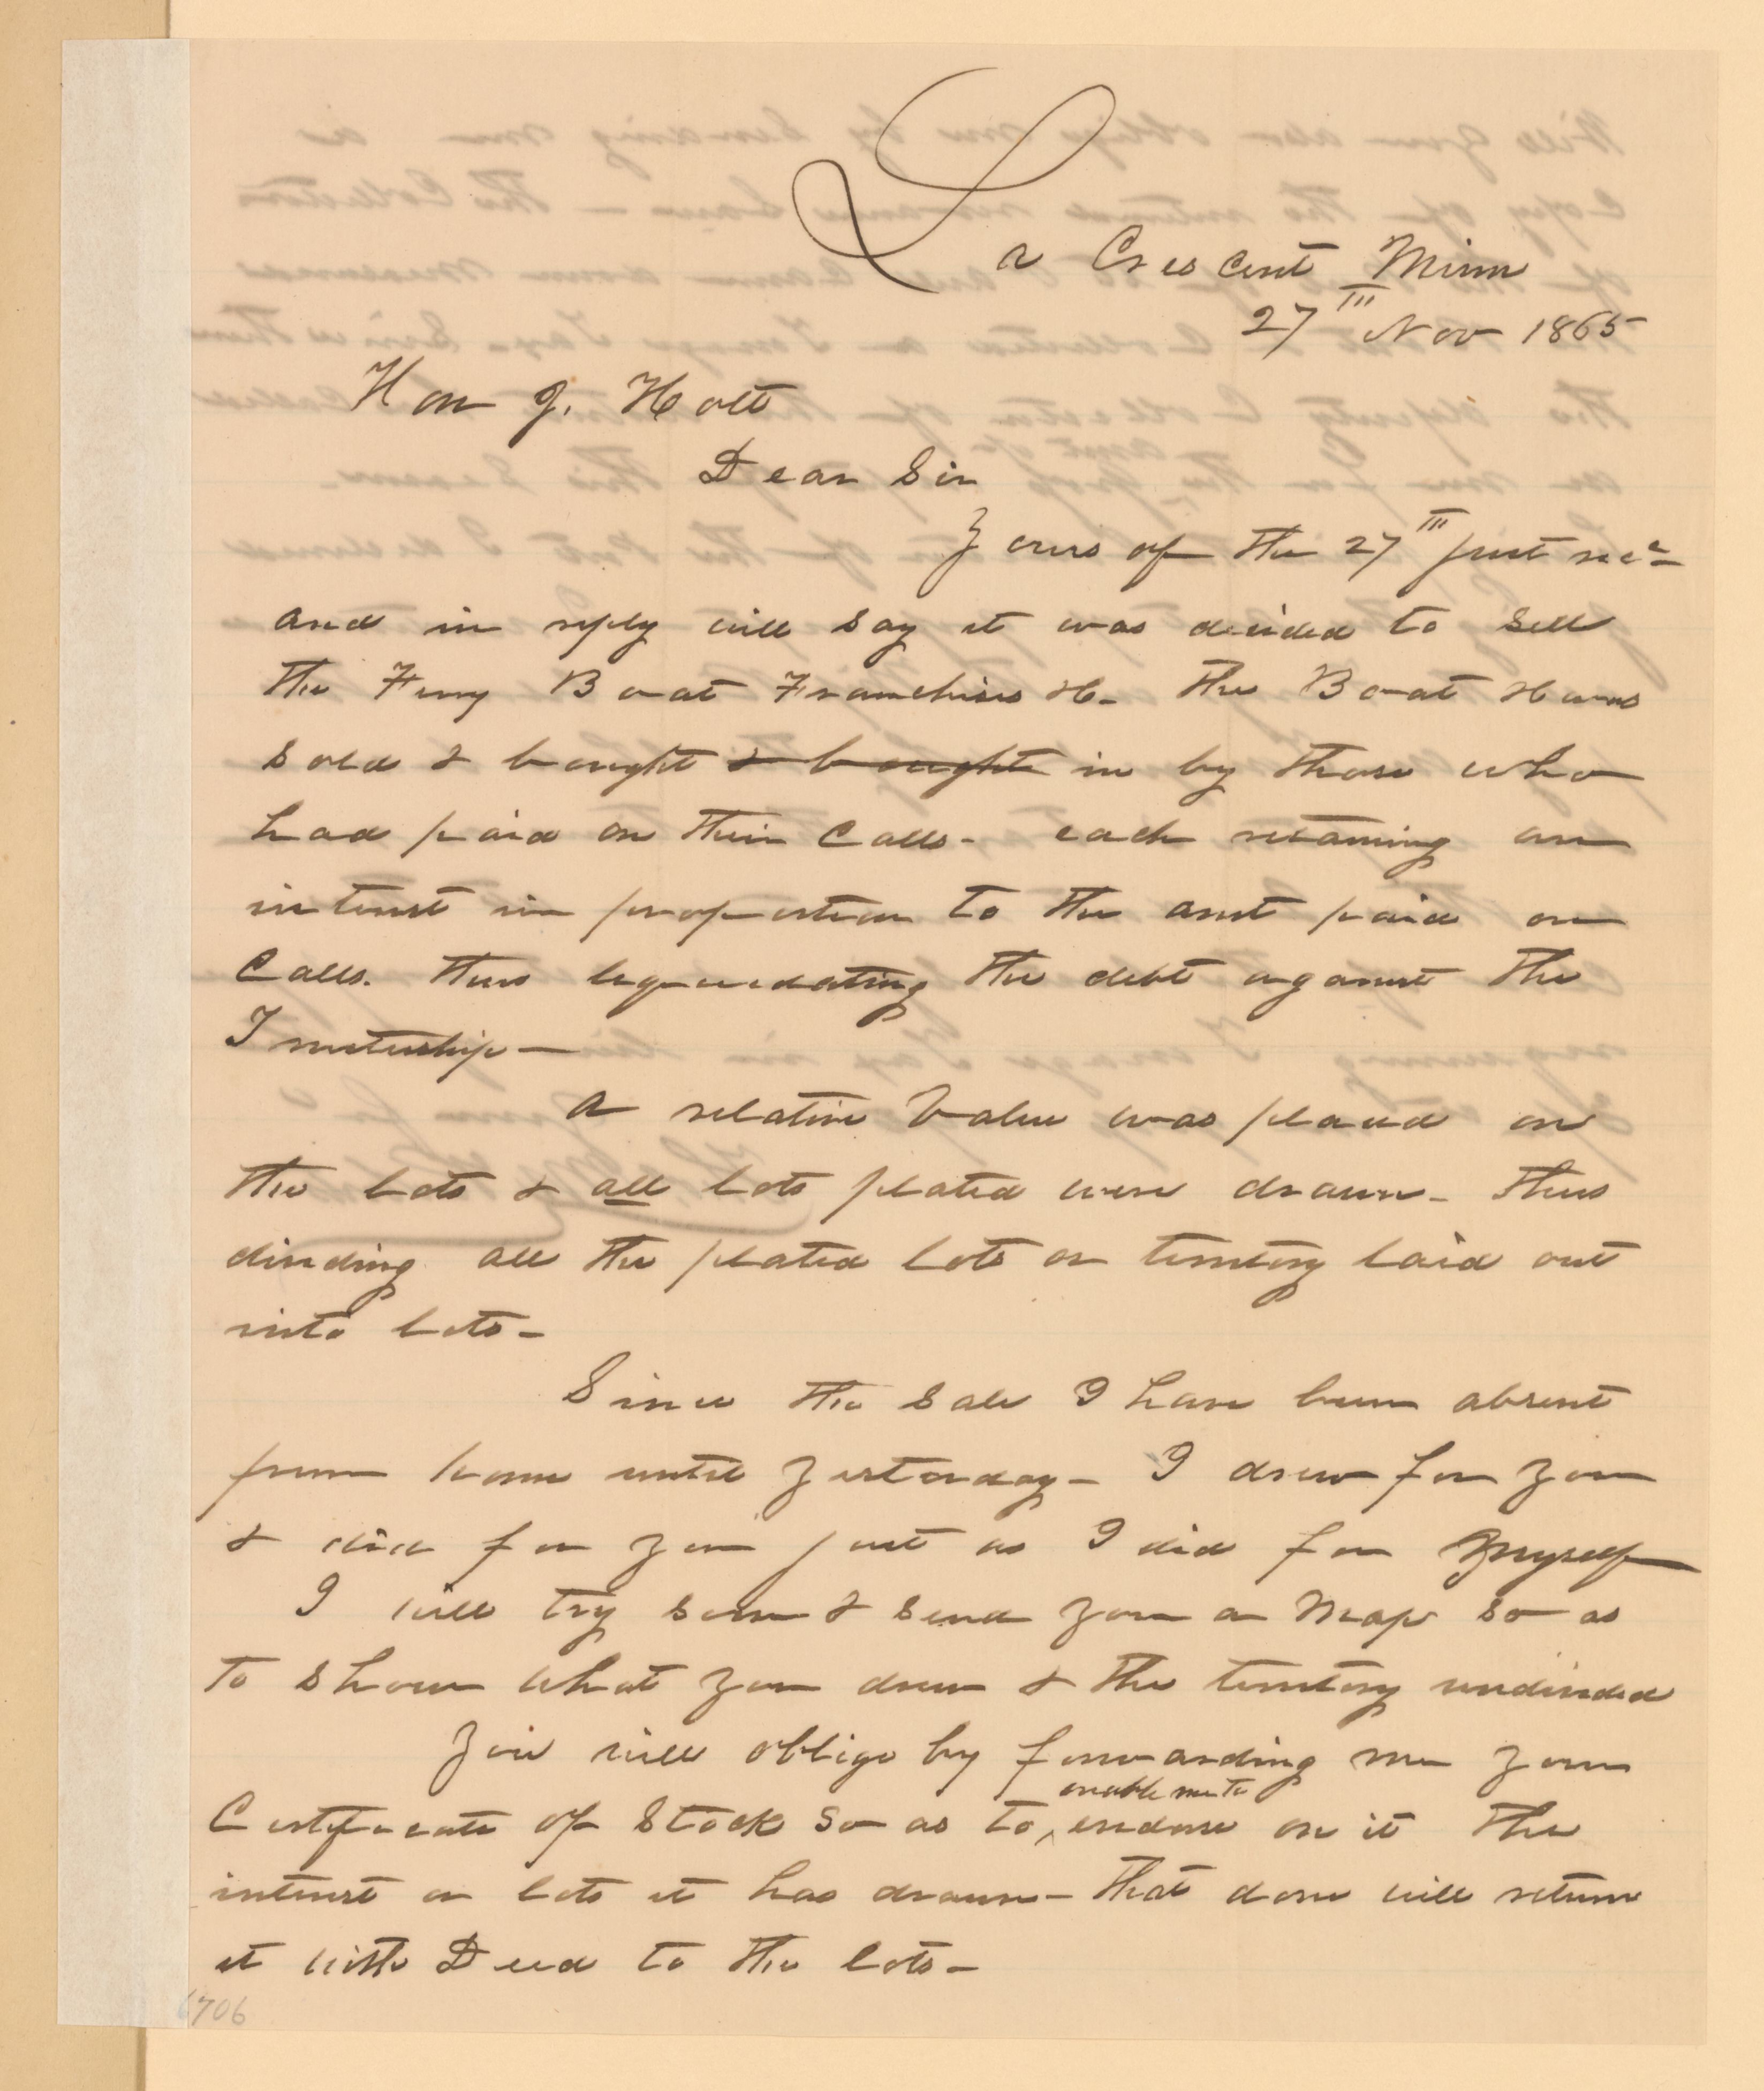 La Crescent Minn
27th Nov 1865
Hon J. Holt
Dear Sir
Yours of the 27th just recd
and in reply will say it was decided to sell
the Ferry Boat Franchise &c. The Boat &c was
sold & bought & bought in by those who
had paid on their Calls - each retaining an
interest in proportion to the amt paid on
Calls. thus lequidating the debt against the
Trusteeship -
A relative Value was placed on
the lots & all lots plated were drawn - thus
dividing all the plated lots or territory laid out
into lots -
Since the sale I have been absent
from home until yesterday - I drew for you
& did for you just as I did for Myself
I will try soon & send you a Map so as
to show what you drew & the territory undivided
You will oblige by forwarding me your
Certificate of Stock so as to enable me to endorse on it the
interest or lots it has drawn - that done will return
it with Deed to the lots -
6706